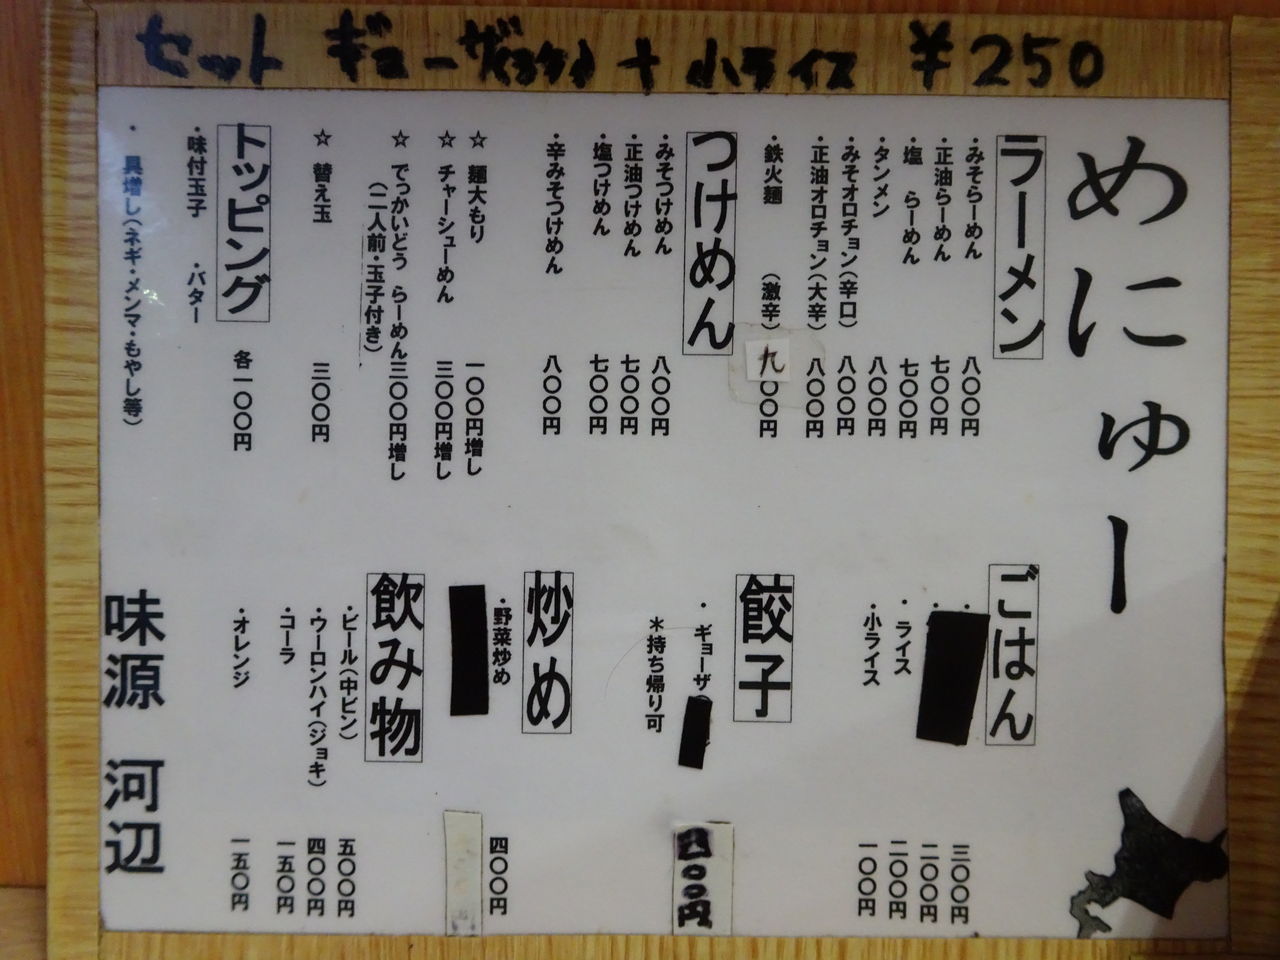 セット ギョーザ(3ケ) + 小ライス ¥250
めにゅー
ラーメン
・みそらーめん 八〇〇円
・正油らーめん 七〇〇円
・塩 らーめん 七〇〇円
・タンメン 八〇〇円
・みそオロチョン(辛口) 八〇〇円
・正油オロチョン(大辛) 八〇〇円
・鉄火麺 (激辛) 九〇〇円
つけめん
・みそつけめん 八〇〇円
・正油つけめん 七〇〇円
・塩つけめん 七〇〇円
・辛みそつけめん 八〇〇円
☆ 麺大もり 一〇〇円増し
☆ チャーシューめん 三〇〇円増し
☆ でっかいどう らーめん 三〇〇円増し
(二人前・玉子付き)
☆ 替え玉 三〇〇円
トッピング 各一〇〇円
・味付玉子 ・バター
・具増し(ネギ・メンマ・もやし等)
ごはん
三〇〇円
二〇〇円
・ライス 二〇〇円
・小ライス 一〇〇円
餃子
・ギョーザ 四〇〇円
*持ち帰り可
炒め
・野菜炒め 四〇〇円
飲み物
・ビール(中ビン) 五〇〇円
・ウーロンハイ(ジョキ) 四〇〇円
・コーラ 一五〇円
・オレンジ 一五〇円
味源 河辺